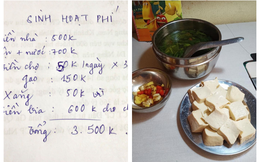 SINH HOẠT PHÍ
tiền nhà : 500k
điện + nước : 700k
tiền chợ : 50k /ngày x 3
gạo : 150k
Xăng : 50k
600k cho
tổng : 3.500k